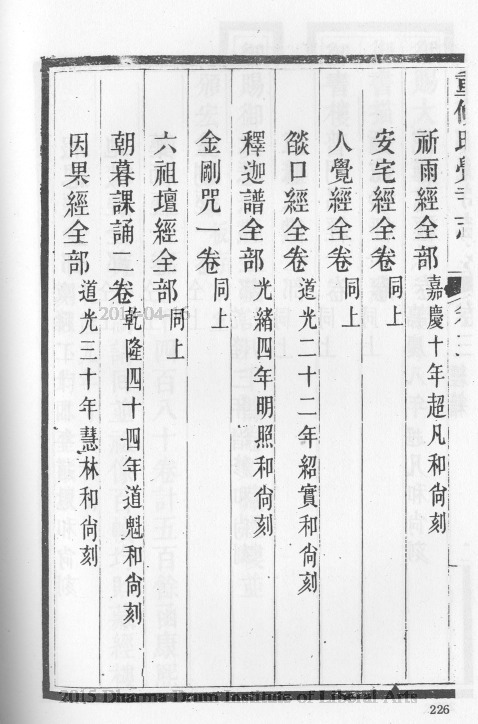 重修昭覺寺志
祈雨經全部 嘉慶十年超凡和尙刻
安宅經全卷 同上
人覺經全卷 同上
燄口經全卷 道光二十二年紹實和尙刻
釋迦譜全部 光緒四年明照和尙刻
金剛咒一卷 同上
六祖壇經全部 同上
朝暮課誦二卷 乾隆四十四年道魁和尙刻
因果經全部 道光三十年慧林和尙刻
2015 Dharma Drum Institute of Liberal Arts
226